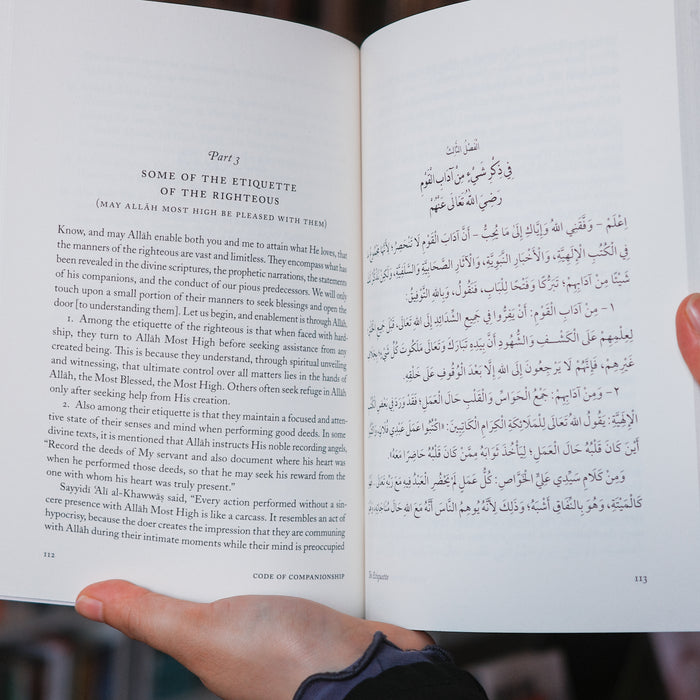 Part 3
SOME OF THE ETIQUETTE
OF THE RIGHTEOUS
(MAY ALLĀH MOST HIGH BE PLEASED WITH THEM)
Know, and may Allāh enable both you and me to attain what He loves, that
the manners of the righteous are vast and limitless. They encompass what has
been revealed in the divine scriptures, the prophetic narrations, the statements
of his companions, and the conduct of our pious predecessors. We will only
touch upon a small portion of their manners to seek blessings and open the
door [to understanding them]. Let us begin, and enablement is through Allāh.
1. Among the etiquette of the righteous is that when faced with hard-
ship, they turn to Allāh Most High before seeking assistance from any
created being. This is because they understand, through spiritual unveiling
and witnessing, that ultimate control over all matters lies in the hands of
Allāh, the Most Blessed, the Most High. Others often seek refuge in Allāh
only after seeking help from His creation.
2. Also among their etiquette is that they maintain a focused and atten-
tive state of their senses and mind when performing good deeds. In some
divine texts, it is mentioned that Allāh instructs His noble recording angels,
“Record the deeds of My servant and also document where his heart was
when he performed those deeds, so that he may seek his reward from the
one with whom his heart was truly present.”
Sayyidī ʿAlī al-Khawwāṣ said, “Every action performed without a sin-
cere presence with Allāh Most High is like a carcass. It resembles an act of
hypocrisy, because the doer creates the impression that they are communing
with Allāh during their intimate moments while their mind is preoccupied
112
CODE OF COMPANIONSHIP
الْفَصْلُ الثَّالِثُ
فِي ذِكْرِ شَيْءٍ مِنْ آدَابِ الْقَوْمِ
رَضِيَ اللهُ تَعَالَى عَنْهُمْ
اِعْلَمْ – وَفَّقَنِي اللهُ وَإِيَّاكَ إِلَى مَا يُحِبُّ – أَنَّ آدَابَ الْقَوْمِ لَا تَنْحَصِرُ؛ لِأَنَّهَا
فِي الْكُتُبِ الْإِلَهِيَّةِ، وَالْأَخْبَارِ النَّبَوِيَّةِ، وَالْآثَارِ الصَّحَابِيَّةِ وَالسَّلَفِيَّةِ،
شَيْئًا مِنْ آدَابِهِمْ؛ تَبَرُّكًا وَفَتْحًا لِلْبَابِ، فَنَقُولُ، وَبِاللهِ التَّوْفِيقُ:
١– مِنْ آدَابِ الْقَوْمِ: أَنْ يَفِرُّوا فِي جَمِيعِ الشَّدَائِدِ إِلَى اللهِ تَعَالَى، قَبْلَ جَمِيعِ
لِعِلْمِهِمْ عَلَى الْكَشْفِ وَالشُّهُودِ أَنَّ بِيَدِهِ تَبَارَكَ وَتَعَالَى مَلَكُوتُ كُلِّ شَيْءٍ
غَيْرِهِمْ، فَإِنَّهُمْ لَا يَرْجِعُونَ إِلَى اللهِ إِلَّا بَعْدَ الْوُقُوفِ عَلَى خَلْقِهِ
٢– وَمِنْ آدَابِهِمْ: جَمْعُ الْحَوَاسِّ وَالْقَلْبِ حَالَ الْعَمَلِ؛ فَقَدْ وَرَدَ فِي بَعْضِ الْكُتُبِ
الْإِلَهِيَّةِ: يَقُولُ اللهُ تَعَالَى لِلْمَلَائِكَةِ الْكِرَامِ الْكَاتِبِينَ: «اكْتُبُوا عَمَلَ عَبْدِي فُلَانٍ،
أَيْنَ كَانَ قَلْبُهُ حَالَ الْعَمَلِ؛ لِيَأْخُذَ ثَوَابَهُ مِمَّنْ كَانَ قَلْبُهُ حَاضِرًا مَعَهُ»
وَمِنْ كَلَامِ سَيِّدِي عَلِيٍّ الْخَوَّاصِ: كُلُّ عَمَلٍ لَمْ يَحْضُرِ الْعَبْدُ فِيهِ مَعَ اللهِ تَعَالَى
كَالْمَيْتَةِ، وَهُوَ بِالنِّفَاقِ أَشْبَهُ؛ وَذَلِكَ لِأَنَّهُ يُوهِمُ النَّاسَ أَنَّهُ مَعَ اللهِ حَالَ
Etiquette
113